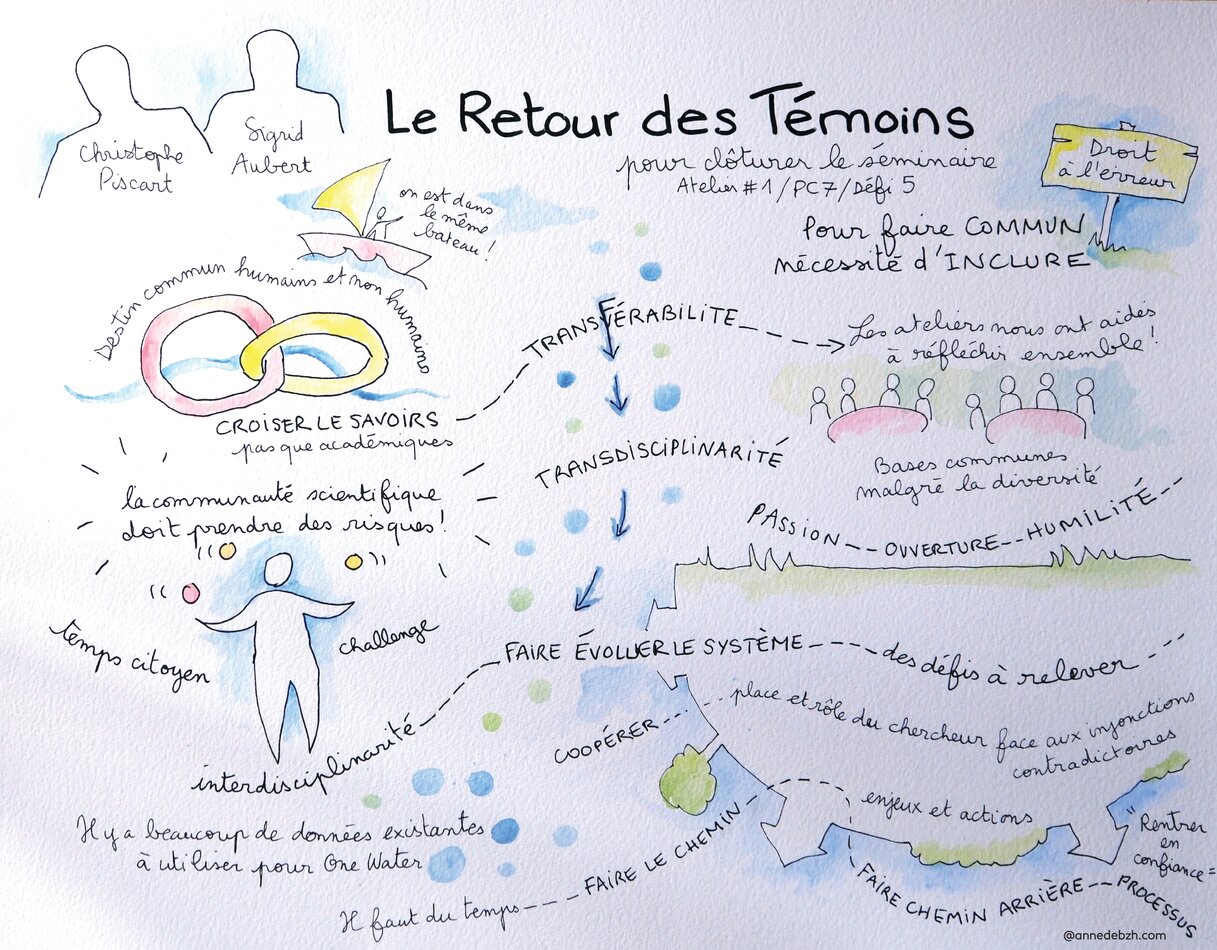 Le Retour des Témoins
pour clôturer le séminaire
Atelier #1 / PC7 / Défi 5
Christophe
Piscart
Sigrid
Aubert
Droit
à l'erreur
on est dans
le même
bateau !
Pour faire COMMUN
nécessité d'INCLURE
Destin commun humains et non humains
CROISER LE SAVOIRS
pas que académiques
TRANSFÉRABILITE
Les ateliers nous ont aidés
à réfléchir ensemble !
TRANSDISCIPLINARITÉ
Bases communes
malgré la diversité
la communauté scientifique
doit prendre des risques !
PASSION -- OUVERTURE -- HUMILITÉ --
temps citoyen
challenge
interdisciplinarité
FAIRE ÉVOLUER LE SYSTÈME
des défis à relever
COOPÉRER
place et rôle du chercheur face aux injonctions
contradictoires
Il y a beaucoup de données existantes
à utiliser pour One Water
enjeux et actions
Il faut du temps
FAIRE LE CHEMIN
FAIRE CHEMIN ARRIÈRE -- PROCESSUS
"Rentrer
en
confiance =
@annedebzh.com